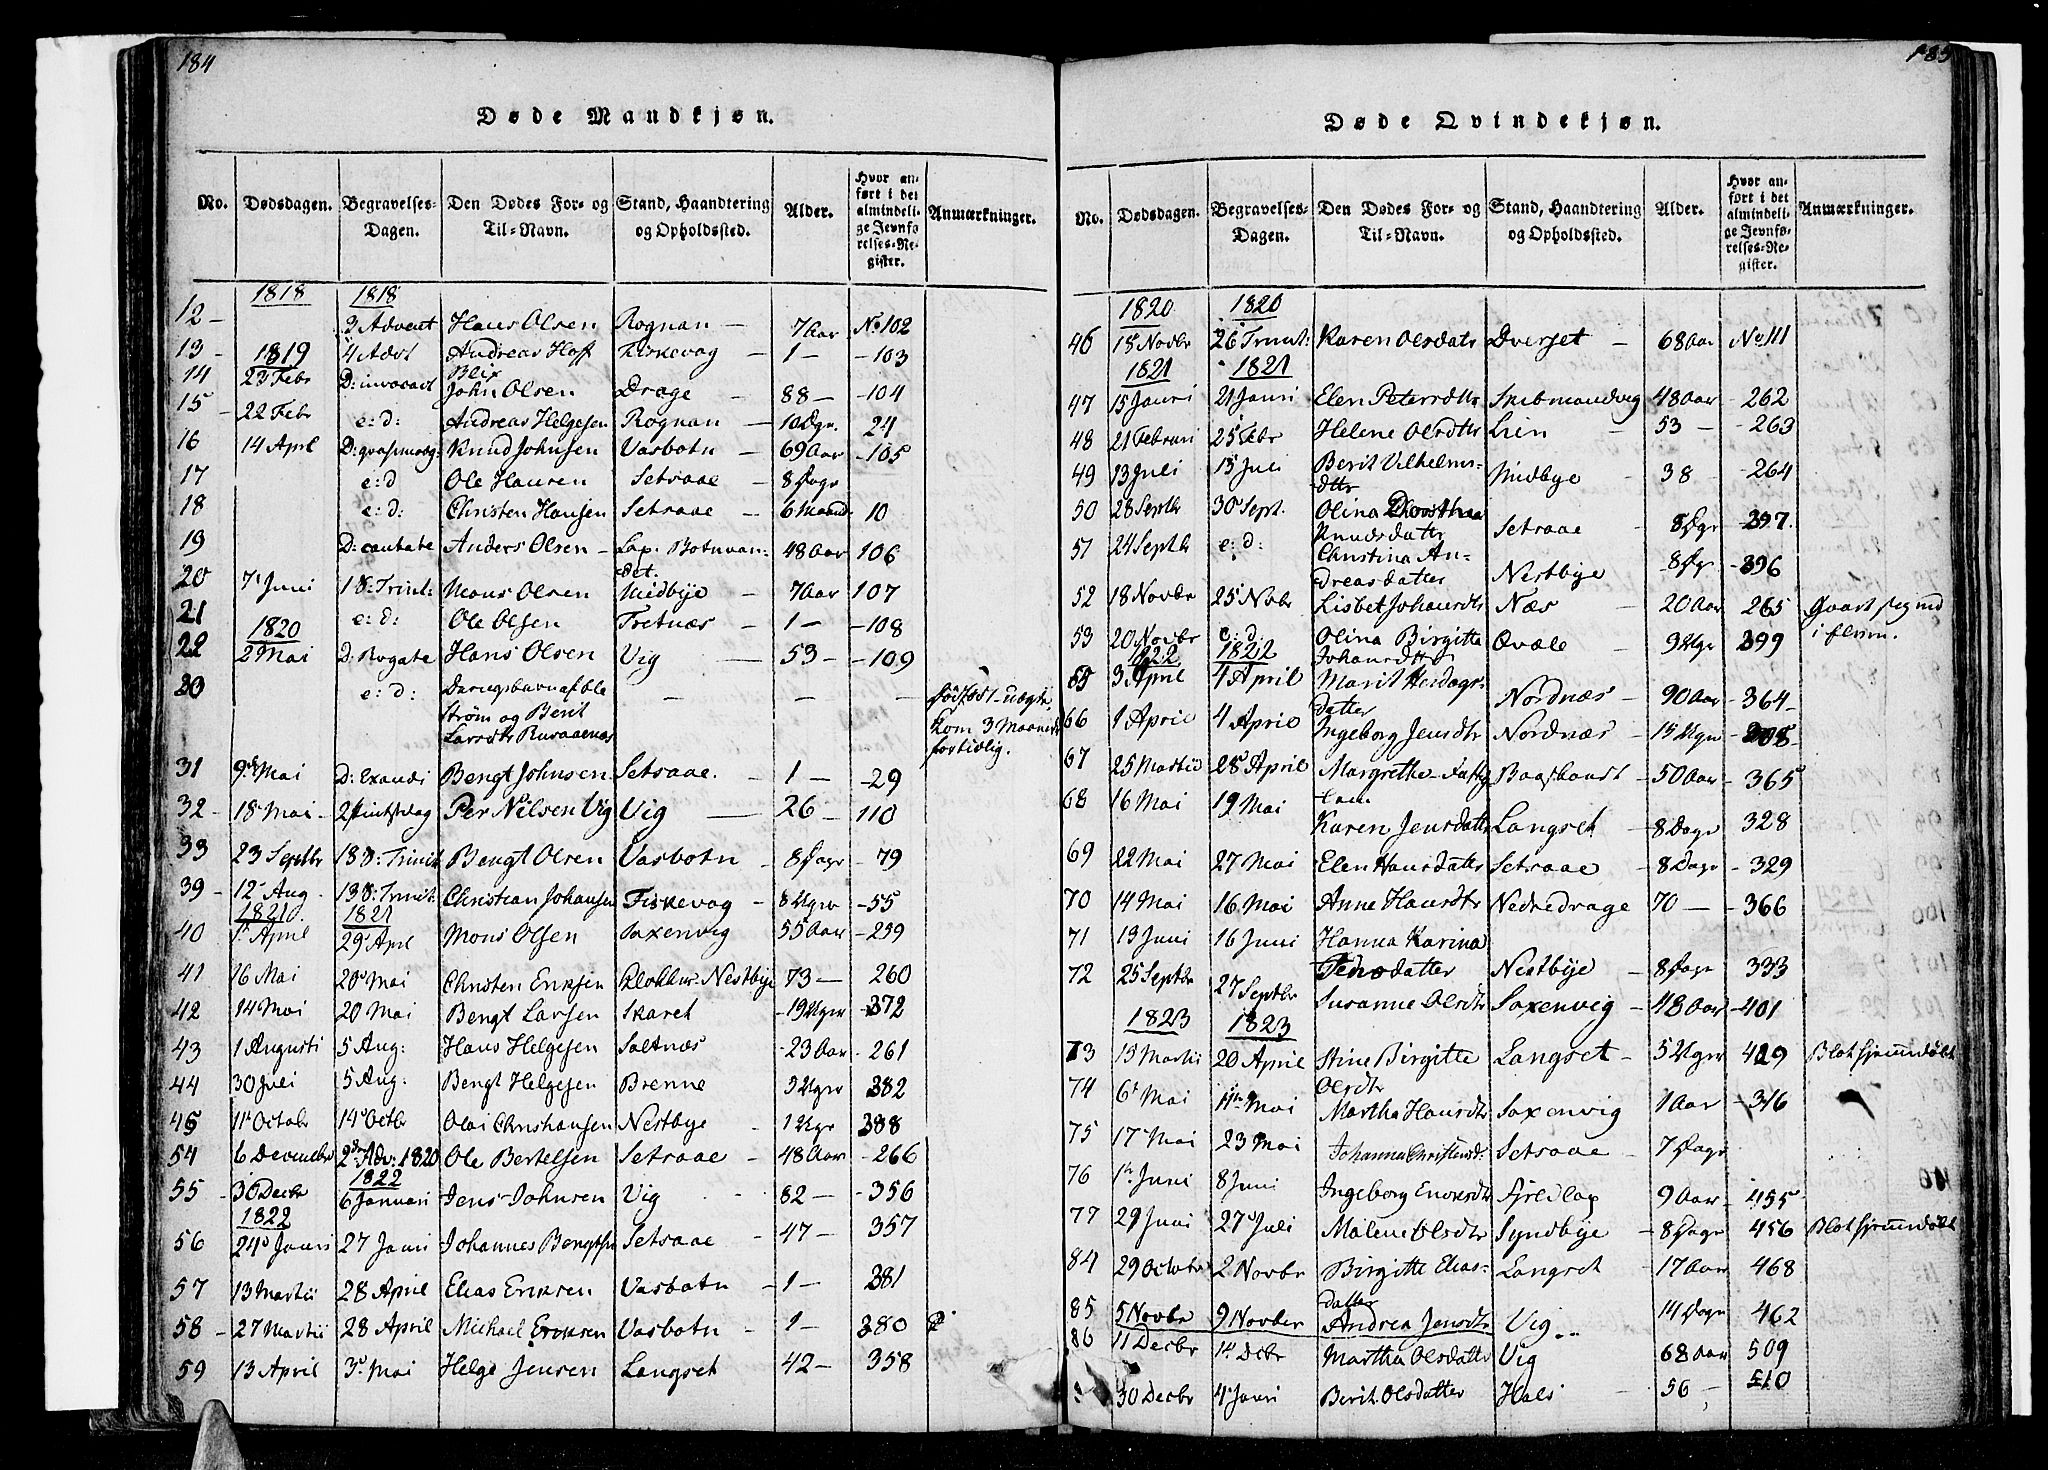 184
Døde Mandkjøn.
No. Dødsdagen. Begravelses-Dagen. Den Dødes For- og Til-Navn. Stand, Haandtering og Opholdssted. Alder. Hvor anført i det almindelige Jevnførelses-Register. Anmærkninger.
1818 1818
12 - 3 Advent Hans Olsen Rognan - 7 Aar No 102
13 - 4 Advt Andreas Hoff Blix Fiskevag - 1 - - 103
1819
14 23 Febr D: invocavt John Olsen Drage - 88 - - 104
15 - 22 Febr e: d: Andreas Helgesen Rognan - 10 Dgr. 24
16 14 Apil Knud Johnsen Vasbotn - 69 Aar - 105
17 e: d Ole Hansen Setraae - 8 Dage
18 e: d: Christen Hansen Setraae - 6 Maand 10
19 D: cantate Anders Olsen - Lap. Botnvan: det. 48 Aar 106
20 7 Juni 1 S: Trinit: Mons Olsen Midbye - 7 Aar 107
21 e: d: Ole Olsen Fretnæs - 1 - - 108
1820
22 2 Mai D: Rogate Hans Olsen Vig - 53 - - 109
30 e: d: Strøm og Berit - - - Kom 3 Maaneder fortidlig.
31 9 Mai D: Exaudi Bengt Johnsen Setraae. - 1 - - 29
32 - 18 Mai - 2 Pintsdag Per Nilsen Vig Vig - 26 - 110
33 23 Septbr 18 S: Trinit Bengt Olsen Vasbotn - 8 Dage - 79
39 - 12 Aug - 13 S: Trinit: Christian Johansen Fiskevag - 8 Ugr - 55
1821 1821
40 1 April 29 Apl Mons Olsen Saxenvig 55 Aar - 259
41 16 Mai 20 Mai Christen Eriksen Klokker Nestbye 73 - 260
42 14 Mai 20 Mai Bengt Larsen Skaret - 19 Ugr - 372
43 1 Augusti 5 Aug: Hans Helgesen Saltnæs - 23 Aar - 261
44 30 Juli 5 Aug: Bengt Helgesen Brenne 3 Ugr 382
45 11 Octobr 14 Octbr Olai Christiansen Nestbye - 1 Ugr 388
54 6 Decembr 2 Adv: 1820 Ole Bertelsen Setraae - 48 Aar - 266
1822
55 - 30 Decbr 6 Januari Jens Johnsen Vig - 82 - - 356
1822
56 24 Janri 27 Janri Johannes Bengtsen Setraae - 47 - 357
57 13 Martii 28 April Elias Eriksen Vasbotn - 1 - 381
58 - 27 Martii 28 April Michael Eriksen Vasbotn - 1 - 380
59 13 April 3 Mai Helge Jensen Langset 42 - 358
185
Døde Qvindekjøn.
No. Dødsdagen. Begravelses-Dagen. Den Dødes For- og Til-Navn. Stand, Haandtering og Opholdssted. Alder. Hvor anført i det almindelige Jevnførelses-Register. Anmærkninger.
1820 1820
46 18 Novbr 26 Trinit: Karen Olsdatr Dverset - 68 Aar No 111
1821 1821
47 15 Janri 21 Janri Elen Petersdtr Skibmandvig 48 Aar - 262
48 21 Februari 25 Febr Helene Olsdtr Lien - 53 - - 263
49 13 Juli 15 Juli Berit Vilhelms-dtr Midbye - 38 - 264
50 28 Septbr 30 Sept. Olina Dorothea Knudsdatter Setraae - 8 Dgr - 397.
51 24 Septbr e: d: Christina An-dreasdatter Nestbye - 8 Dgr - 396
52 18 Novbr 25 Novbr Lisbet Johansdtr Næs - 20 Aar 265
53 20 Novbr e: d: Olina Birgitte Johansdtr Qvæle - 9 Ugr 399
1822 1822
65 3 April 4 April Marit Herdags-datter Nordnæs - 90 Aar - 364 -
66 1 April 4 April Ingeborg Jensdtr Nordnæs - 15 Ugr
67 25 Martii 28 April Margrethe Baasbaadt - 50 Aar - 365
68 16 Mai 19 Mai Karen Jensdatter Langset - 8 Dage 328
69 22 Mai 27 Mai Elen Hansdatter Setraae - 8 Dage - 329
70 14 Mai 16 Mai Anne Hansdtr Nedredrage 70 - - 366
71 13 Juni 16 Juni Hanna Karina Pedersdatter Nestbye - 8 Dage - 333
72 25 Septbr 27 Septbr Susanne Olsdtr Saxenvig - 48 Aar - 401
1823 1823
73 15 Martii 20 April Stine Birgitte Olsdtr Langset - 5 Ugr 429 Blot hjemmedøbt
74 6 Mai 11 Mai Martha Hansdtr Saxenvig 1 Aar - 316
75 17 Mai 23 Mai Johanna Christensd: Setraae - 7 Dage
76 1 Juni 8 Juni Ingeborg Enoksdtr Fjeldlap 9 Aar - 455
77 29 Juni 27 Juli Malene Olsdtr Syndbye - 8 Dage 456 Blot hjemmedøbt
84 29 Octobr 2 Novbr Birgitte Elias-datter Langset - 17 Aar 468
85 5 Novbr 9 Novbr Andrea Jensdtr Vig 14 Dage 462
86 11 Decbr 14 Dcbr Martha Olsdatter Vig 68 Aar 509
30 Decbr 4 Janri Berit Olsdatter Hals - 56 - 510